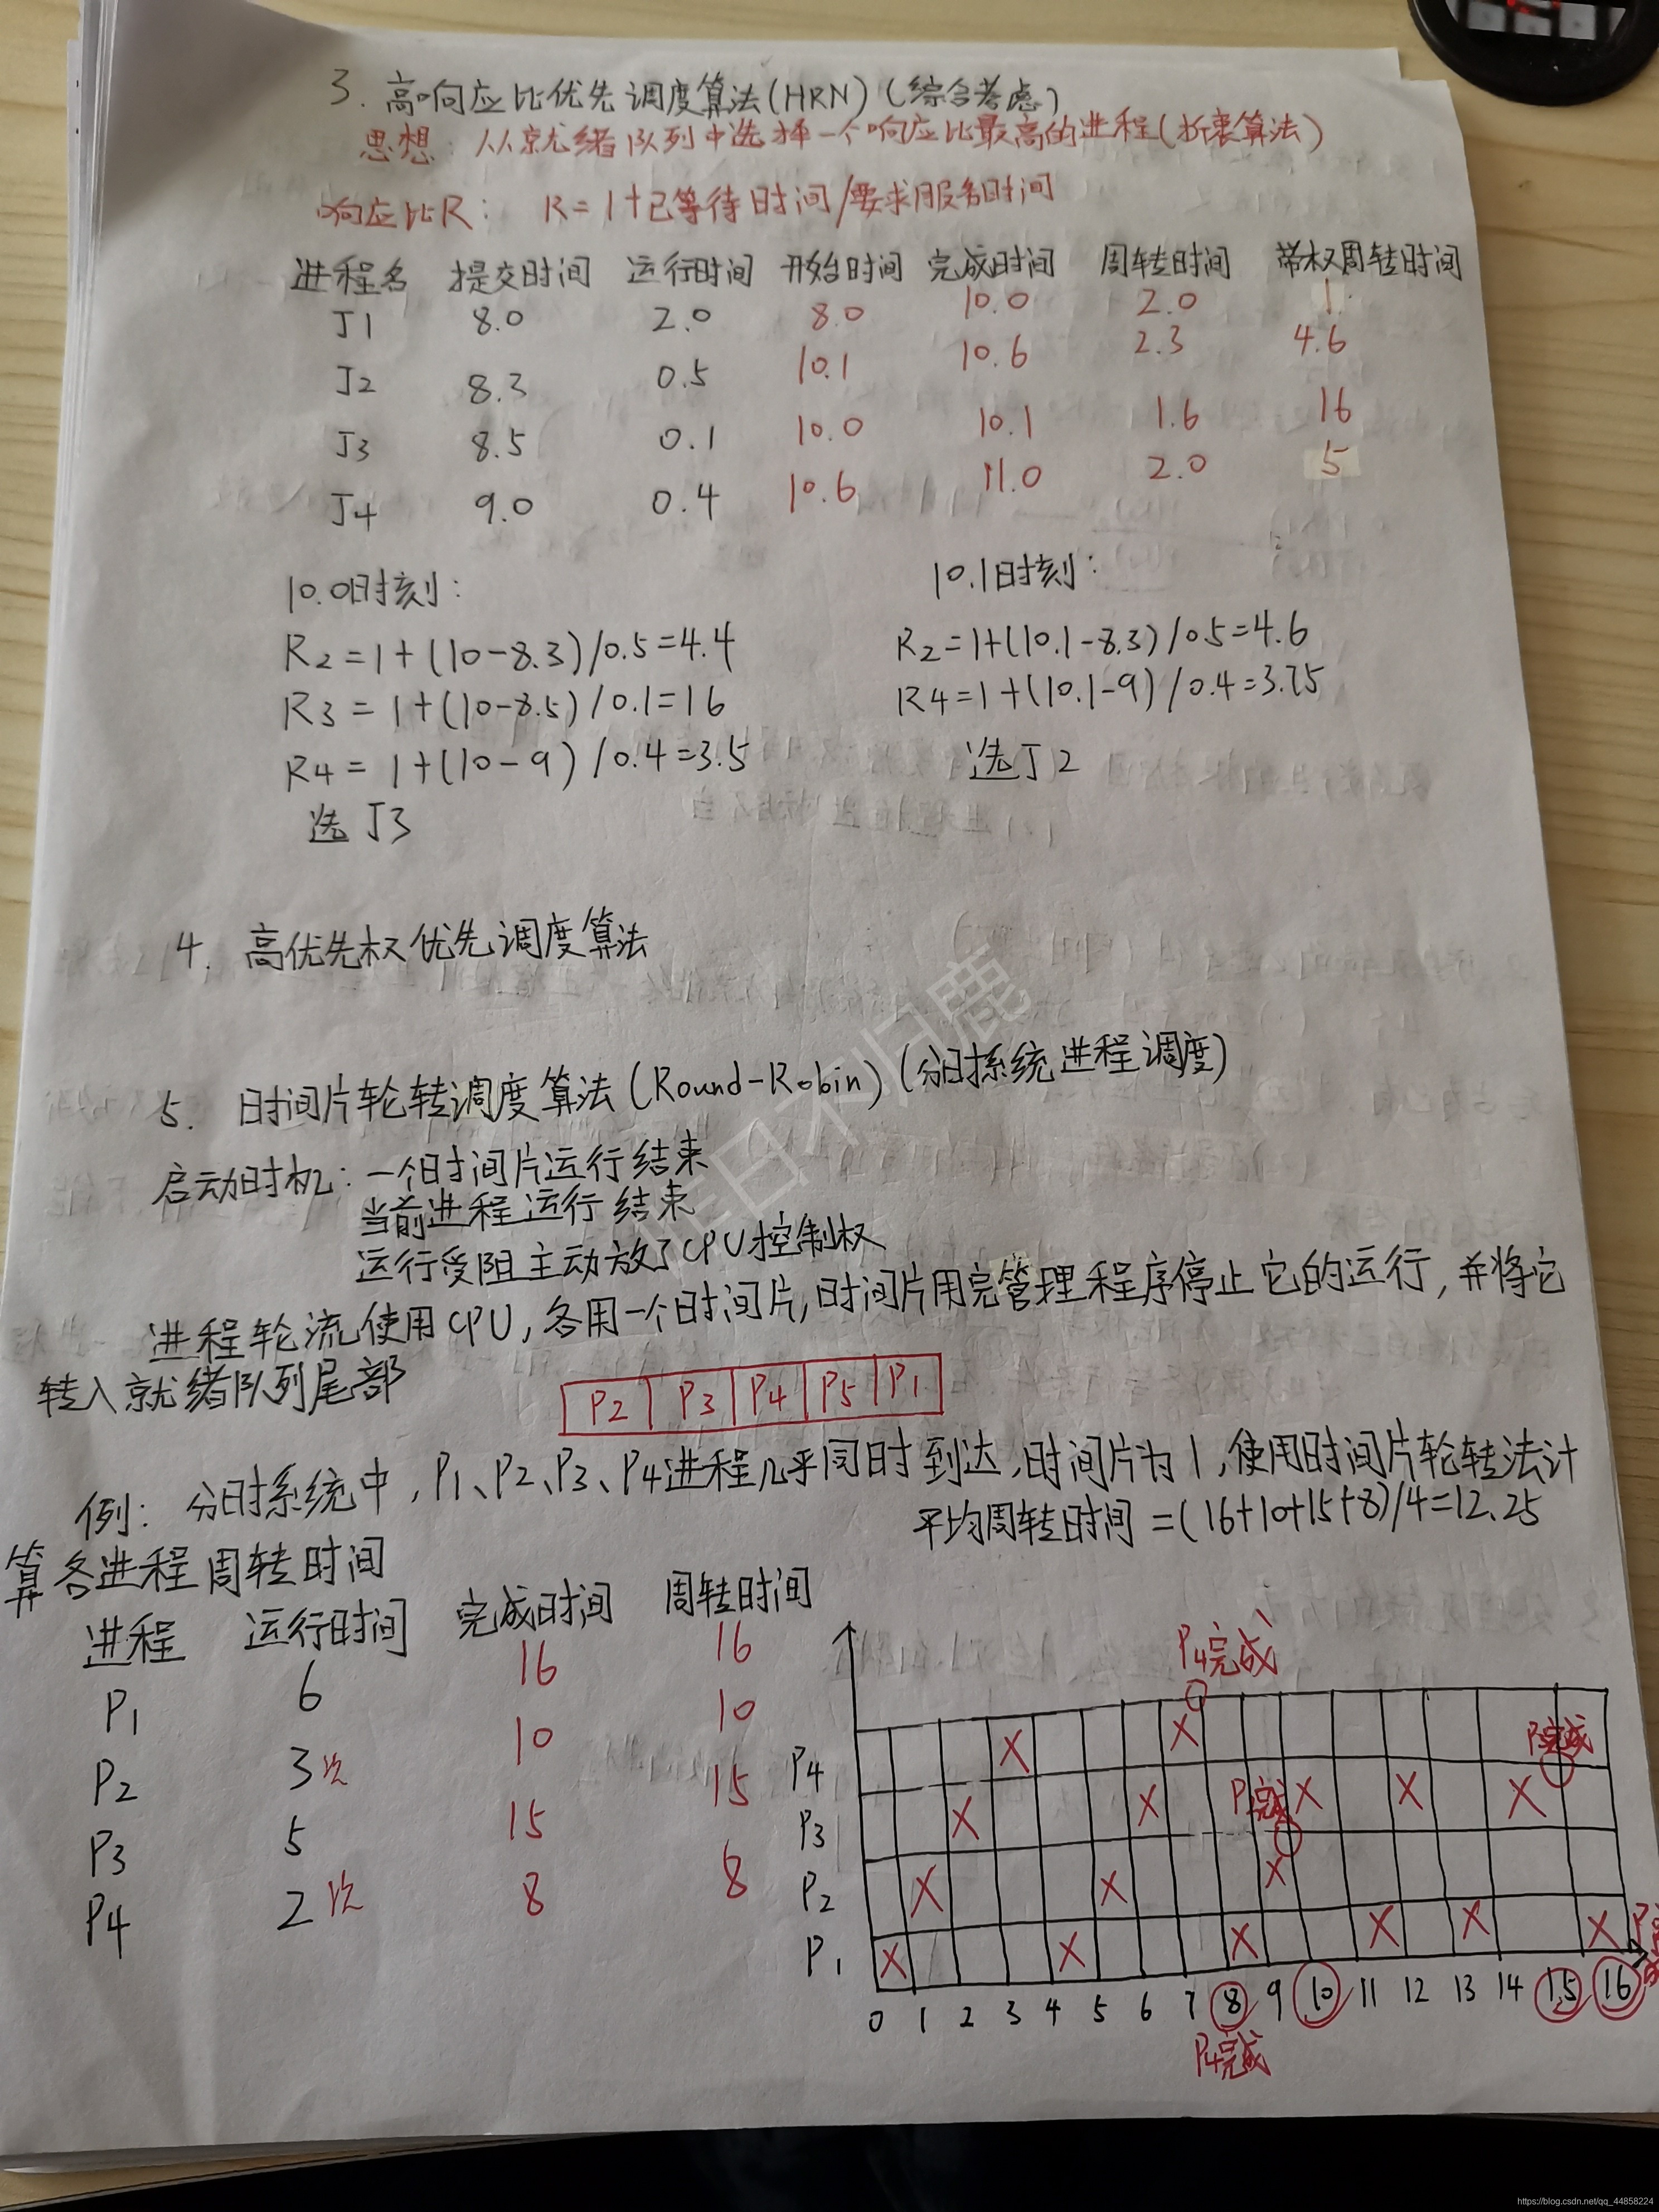 3. 高响应比优先调度算法(HRN)(综合考虑)
思想: 从就绪队列中选择一个响应比最高的进程(折衷算法)
响应比R: R=1+已等待时间/要求服务时间
进程名 提交时间 运行时间 开始时间 完成时间 周转时间 带权周转时间
J1 8.0 2.0 8.0 10.0 2.0 1.
J2 8.3 0.5 10.1 10.6 2.3 4.6
J3 8.5 0.1 10.0 10.1 1.6 16
J4 9.0 0.4 10.6 11.0 2.0 5
10.0时刻: 10.1时刻:
R2=1+(10-8.3)/0.5=4.4 R2=1+(10.1-8.3)/0.5=4.6
R3=1+(10-8.5)/0.1=16 R4=1+(10.1-9)/0.4=3.75
R4=1+(10-9)/0.4=3.5 选J2
选J3
4. 高优先权优先调度算法
5. 时间片轮转调度算法(Round-Robin)(分时系统进程调度)
启动时机: 一个时间片运行结束
当前进程运行结束
运行受阻主动放了CPU控制权
进程轮流使用CPU,各用一个时间片,时间片用完管理程序停止它的运行,并将它
转入就绪队列尾部
P2 P3 P4 P5 P1
例: 分时系统中,P1、P2、P3、P4进程几乎同时到达,时间片为1,使用时间片轮转法计
算各进程周转时间
平均周转时间=(16+10+15+8)/4=12.25
进程 运行时间 完成时间 周转时间
P1 6 16 16
P2 3次 10 10
P3 5 15 15
P4 2次 8 8
P4完成
P4
P3
P2
P1
0 1 2 3 4 5 6 7 8 9 10 11 12 13 14 15 16
P4完成
https://blog.csdn.net/qq_44858224